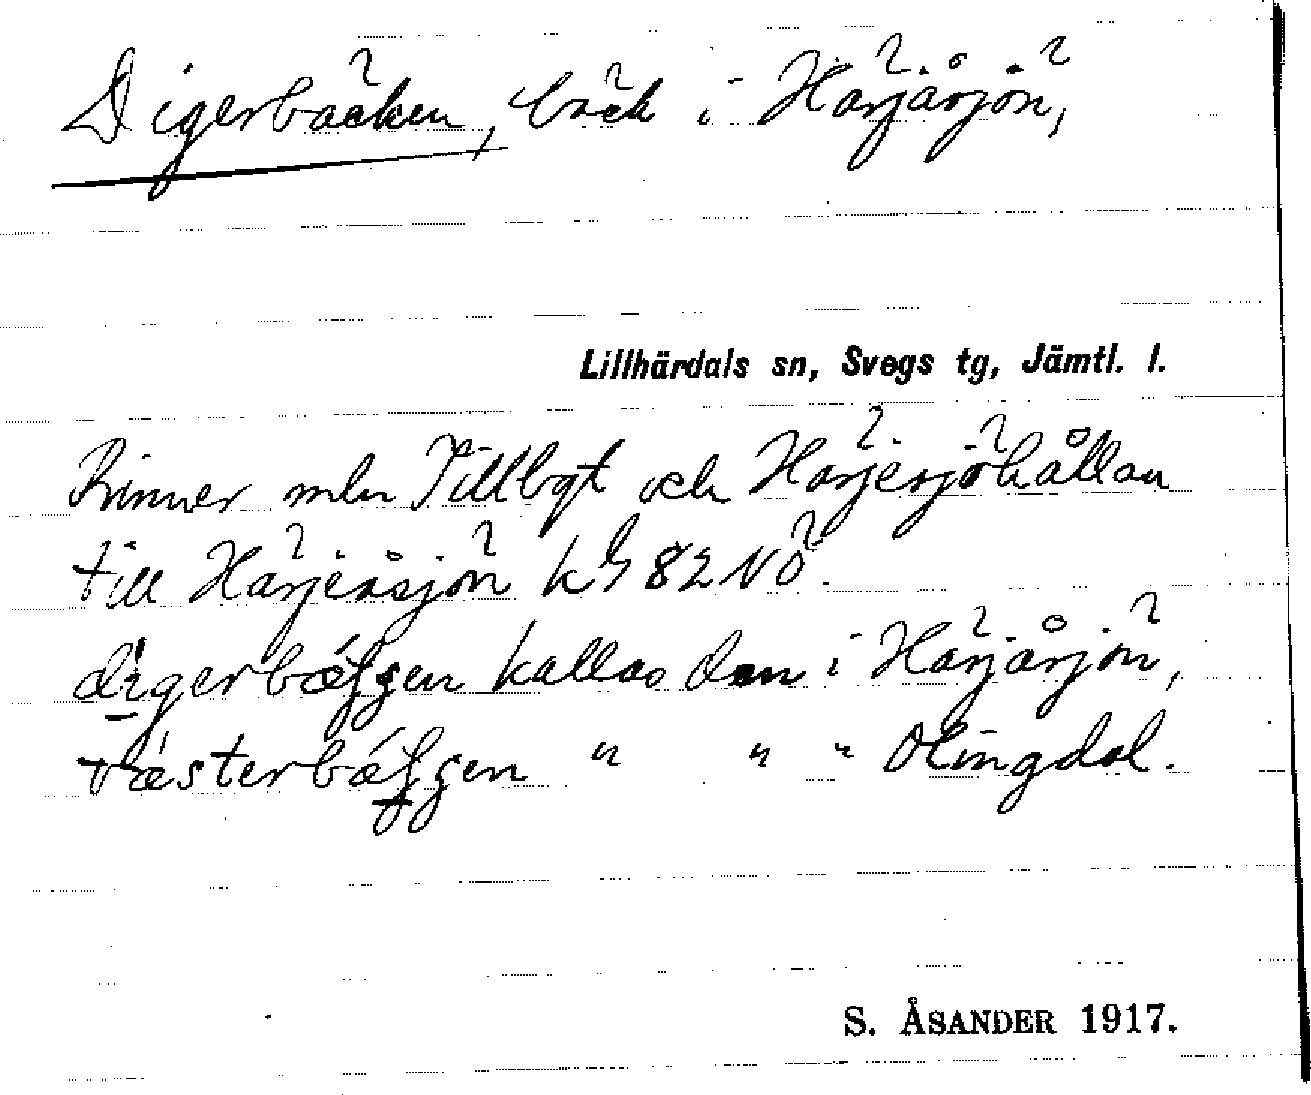 Digerbäcken, bäck i Härjåsjön,
Lillhärdals sn, Svegs tg, Jämtl. l.
Rinner mln Tillbgt och Härjesjöhållan
till Härjeåsjön kg 82 NÖ.
digerbǽʃʃen kallas den i Härjåsjön,
vǽsterbǽʃʃen " " " Olingdal.
S. ÅSANDER 1917.